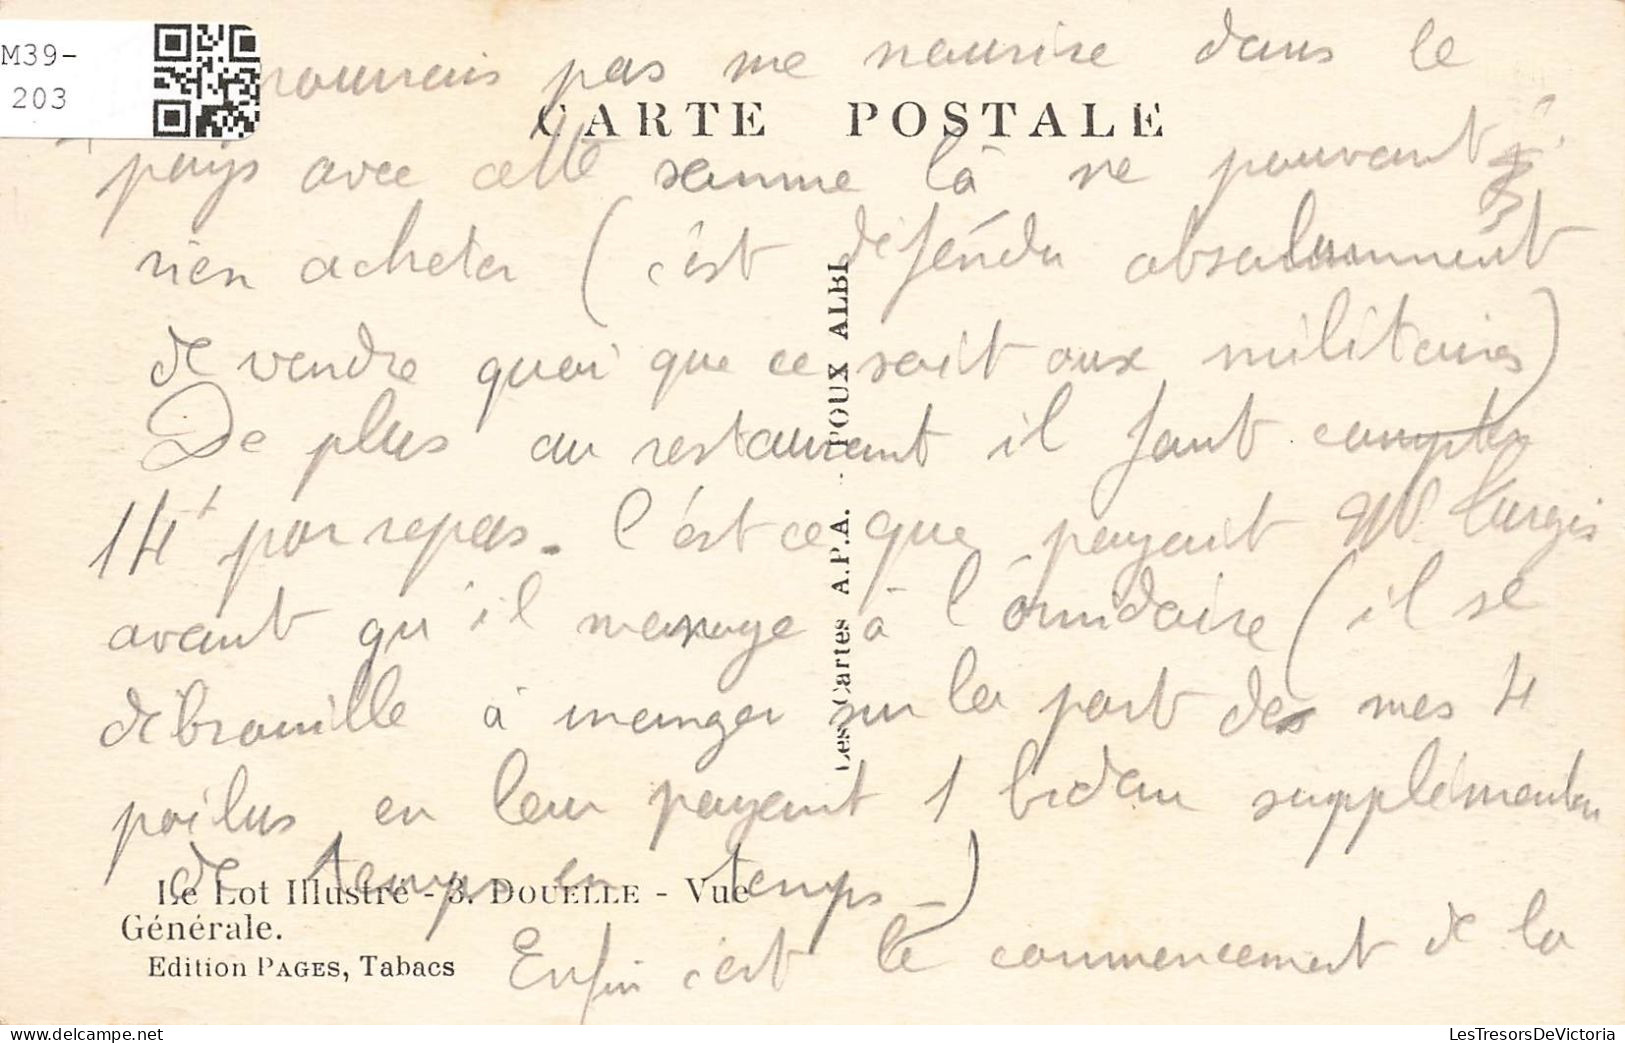 M39-
203
pourrais pas me nourire dans le
CARTE POSTALE
pays avec cette somme là ne pouvant
rien acheter (c'est défendu absolumment
de vendre quoi que ce soit aux militaires)
De plus au restaurant il faut compter
14f par repas. C'est ce que payait Mr
avant qu'il menage à l'orindaire (il se
débrouille à manger sur la part des mes 4
poilus en leur payant 1 bidon supplémentaire
de temps en temps -)
Enfin c'est le commencement de la
Les Cartes A.P.A. - POUX ALBI
Le Lot Illustré - 3. DOUELLE - Vue
Générale.
Edition PAGES, Tabacs
LesTresorsDeVictoria